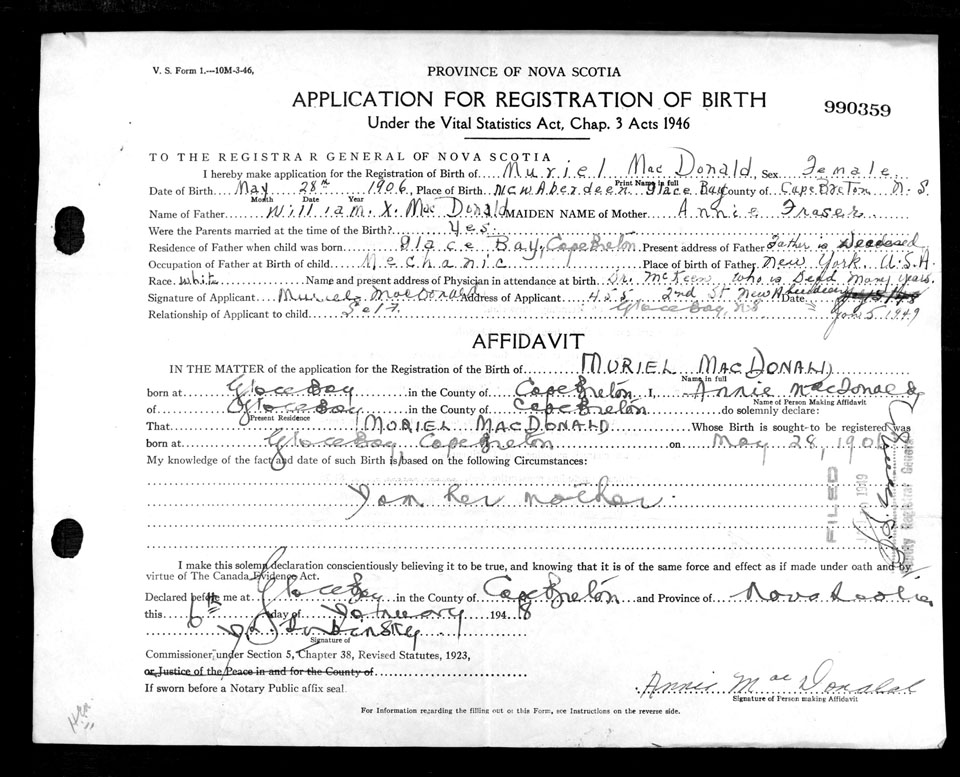 V. S. Form 1.—10M-3-46,
PROVINCE OF NOVA SCOTIA
APPLICATION FOR REGISTRATION OF BIRTH
990359
Under the Vital Statistics Act, Chap. 3 Acts 1946
TO THE REGISTRAR GENERAL OF NOVA SCOTIA
I hereby make application for the Registration of Birth of Muriel Mac Donald Sex Female
Print Name in full
Date of Birth May 28th 1906, Place of Birth New Aberdeen Glace Bay County of Cape Breton N. S.
Month Date Year
Name of Father William X. Mac Donald MAIDEN NAME of Mother Annie Fraser
Were the Parents married at the time of Birth? Yes.
Residence of Father when child was born Glace Bay, Cape Breton. Present address of Father Father is Deceased
Occupation of Father at Birth of child Mechanic Place of Birth of Father New York. U.S.A.
Race White Name and present address of Physician in attendance at birth Dr. McKeen who is Dead many years.
Signature of Applicant Muriel MacDonald Address of Applicant 455 2nd St New Aberdeen Date
Relationship of Applicant to child Self. Glace Bay, NS Jan 5 1949
AFFIDAVIT
IN THE MATTER of the application for the Registration of the Birth of MURIEL MACDONALD
Name in full
born at Glace Bay in the County of Cape Breton I, Annie MacDonald
Name of Person Making Affidavit
of Glace Bay in the County of Cape Breton do solemnly declare:
Present Residence
That MURIEL MACDONALD Whose Birth is sought to be registered was
born at Glace Bay Cape Breton on May 28, 1906
My knowledge of the fact and date of such Birth is based on the following Circumstances:
I am her mother.
FILED
1949
Deputy Registrar General
I make this solemn declaration conscientiously believing it to be true, and knowing that it is of the same force and effect as if made under oath and by
virtue of The Canada Evidence Act.
Declared before me at Glace Bay in the County of Cape Breton and Province of Nova Scotia
this 6th day of January 1948
Signature of
Commissioner under Section 5, Chapter 38, Revised Statutes, 1923,
or Justice of the Peace in and for the County of
If sworn before a Notary Public affix seal.
Annie Mac Donald
Signature of Person making Affidavit
For Information regarding the filling out of this Form, see Instructions on the reverse side.